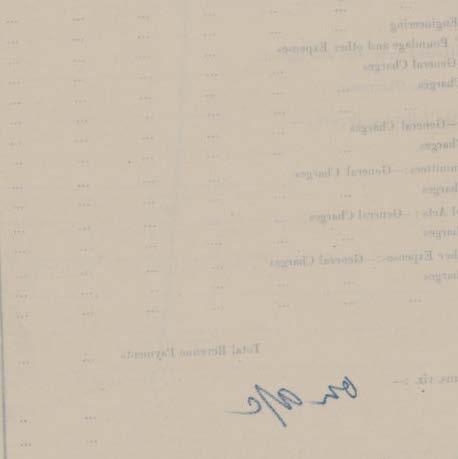 Engineering
Poundage and other Expenses
General Charges
Charges
—General Charges
Charges
mmittees:—General Charges
harges
l Acts:—General Charges
harges
her Expenses:—General Charges
harges
Total Revenue Payments
ms, viz. :—